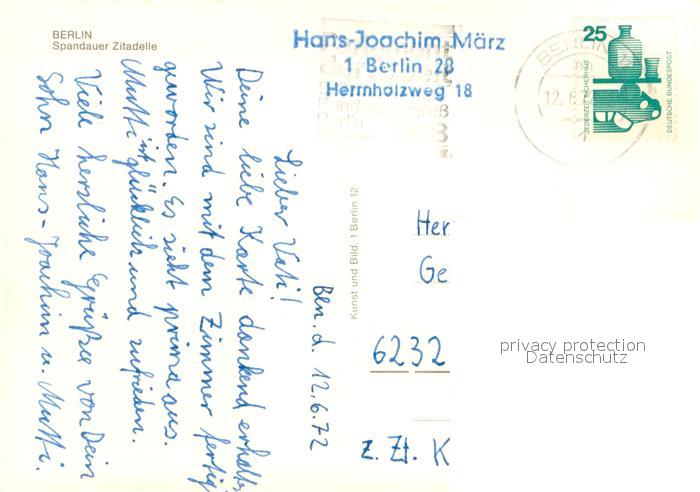 BERLIN
Spandauer Zitadelle
Hans-Joachim März
1 Berlin 28
Herrnholzweg 18
BERLIN
12.6.
25
JEDERZEIT SICHERHEIT
DEUTSCHE BUNDESPOST
Kunst und Bild, 1 Berlin 12
Bln. d. 12.6.72
Lieber Vati!
Deine liebe Karte dankend erhalten
Wir sind mit dem Zimmer fertig
geworden. Es sieht prima aus.
Mutti ist glücklich und zufrieden.
Viele herzliche Grüße von Dein
Sohn Hans-Joachim u. Mutti.
Her
Ge
6232
z. Zt. K
privacy protection
Datenschutz